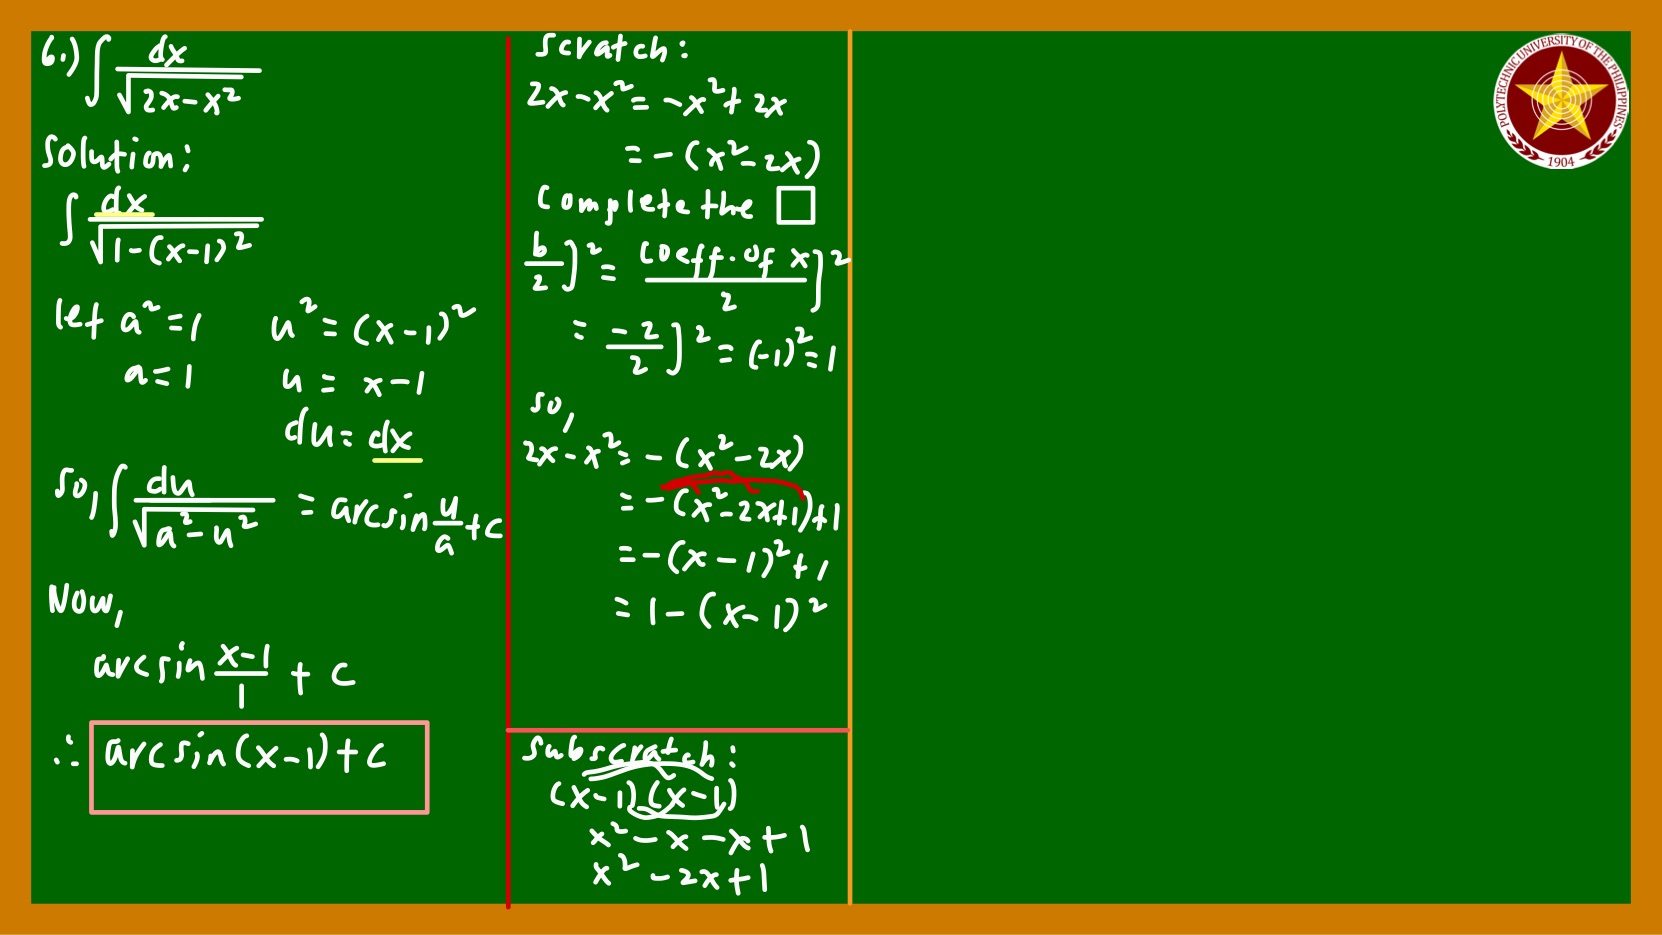 6.) ∫ dx / √(2x-x²)
Solution:
∫ dx / √(1-(x-1)²)
let a²=1 u²=(x-1)²
a=1 u = x-1
du=dx
So, ∫ du / √(a²-u²) = arcsin u/a + c
Now,
arcsin (x-1)/1 + c
∴ arcsin(x-1)+c
Scratch:
2x-x²= -x²+2x
= -(x²-2x)
Complete the □
b/2]² = coeff. of x/2]²
= -2/2]² = (-1)²=1
so,
2x-x²= -(x²-2x)
= -(x²-2x+1)+1
= -(x-1)²+1
= 1-(x-1)²
Subscratch:
(x-1)(x-1)
x²-x-x+1
x²-2x+1
POLYTECHNIC UNIVERSITY OF THE PHILIPPINES
1904